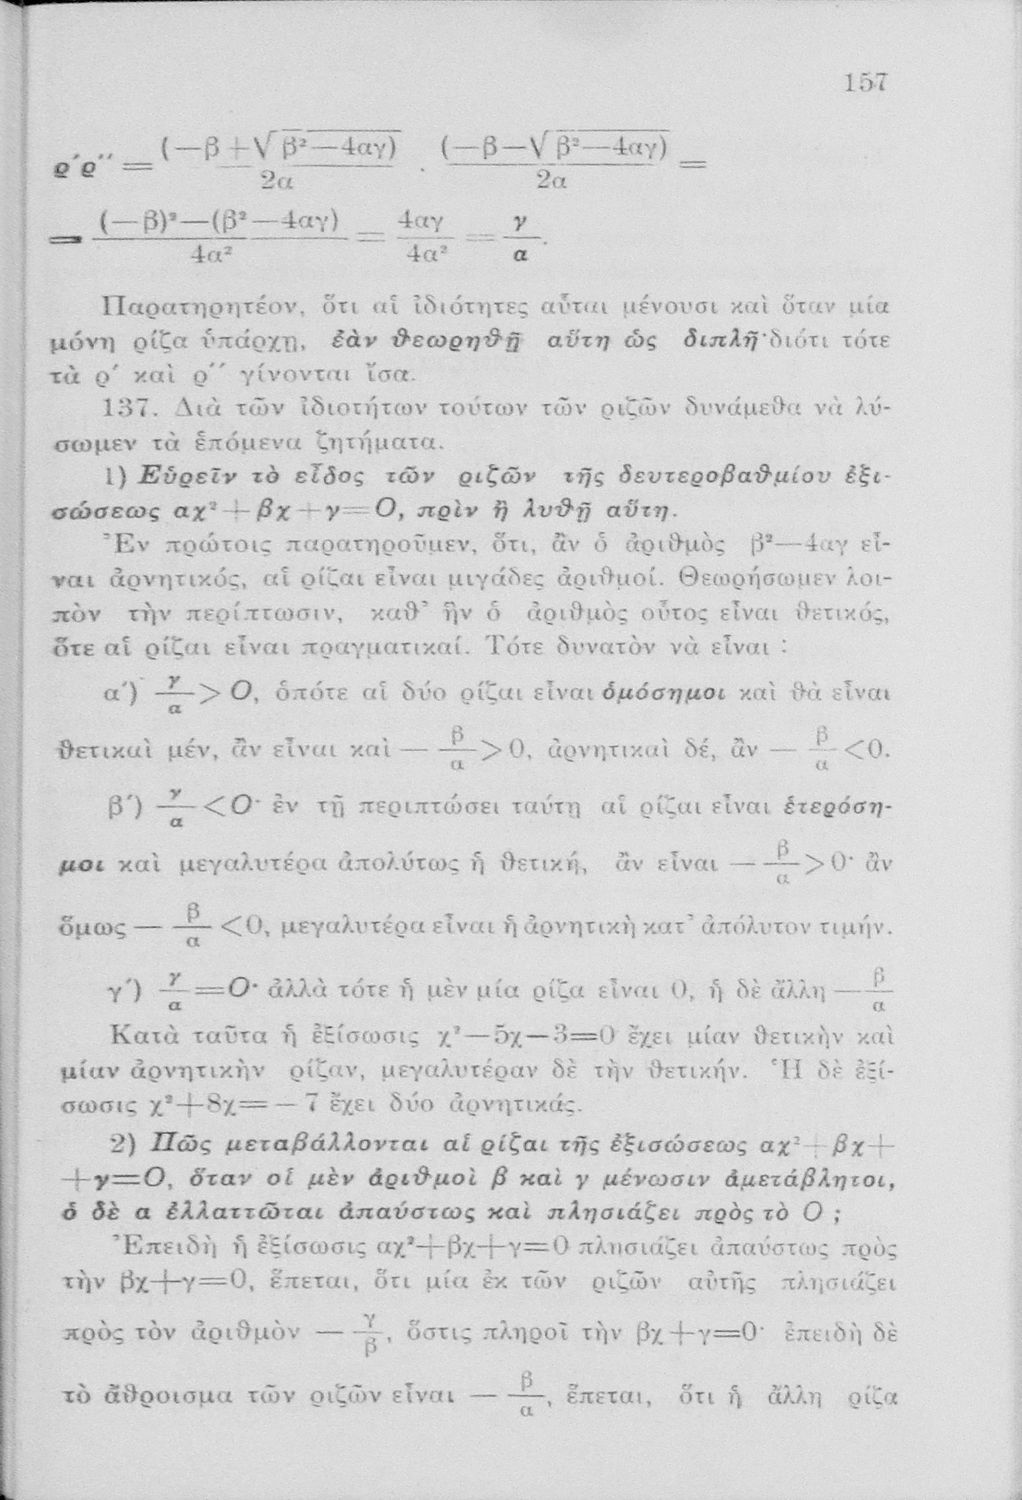 157
ρ′ρ″ = (—β+√β²—4αγ)/2α · (—β—√β²—4αγ)/2α =
= (—β)²—(β²—4αγ)/4α² = 4αγ/4α² = γ/α.
Παρατηρητέον, ὅτι αἱ ἰδιότητες αὗται μένουσι καὶ ὅταν μία
μόνη ρίζα ὑπάρχῃ, ἐὰν θεωρηθῇ αὕτη ὡς διπλῆ·διότι τότε
τὰ ρ′ καὶ ρ″ γίνονται ἴσα.
137. Διὰ τῶν ἰδιοτήτων τούτων τῶν ριζῶν δυνάμεθα νὰ λύ-
σωμεν τὰ ἑπόμενα ζητήματα.
1) Εὑρεῖν τὸ εἶδος τῶν ριζῶν τῆς δευτεροβαθμίου ἐξι-
σώσεως αχ²+βχ+γ=0, πρὶν ἢ λυθῇ αὕτη.
Ἐν πρώτοις παρατηροῦμεν, ὅτι, ἂν ὁ ἀριθμὸς β²—4αγ εἶ-
ναι ἀρνητικός, αἱ ρίζαι εἶναι μιγάδες ἀριθμοί. Θεωρήσωμεν λοι-
πὸν τὴν περίπτωσιν, καθ᾽ ἣν ὁ ἀριθμὸς οὗτος εἶναι θετικός,
ὅτε αἱ ρίζαι εἶναι πραγματικαί. Τότε δυνατὸν νὰ εἶναι :
α′) γ/α > 0, ὁπότε αἱ δύο ρίζαι εἶναι ὁμόσημοι καὶ θὰ εἶναι
θετικαὶ μέν, ἂν εἶναι καὶ — β/α >0, ἀρνητικαὶ δέ, ἂν — β/α <0.
β′) γ/α <0· ἐν τῇ περιπτώσει ταύτῃ αἱ ρίζαι εἶναι ἑτερόση-
μοι καὶ μεγαλυτέρα ἀπολύτως ἡ θετική, ἂν εἶναι — β/α >0· ἂν
ὅμως — β/α <0, μεγαλυτέρα εἶναι ἡ ἀρνητικὴ κατ᾽ ἀπόλυτον τιμήν.
γ′) γ/α =0· ἀλλὰ τότε ἡ μὲν μία ρίζα εἶναι 0, ἡ δὲ ἄλλη — β/α
Κατὰ ταῦτα ἡ ἐξίσωσις χ²—5χ—3=0 ἔχει μίαν θετικὴν καὶ
μίαν ἀρνητικὴν ρίζαν, μεγαλυτέραν δὲ τὴν θετικήν. Ἡ δὲ ἐξί-
σωσις χ²+8χ= — 7 ἔχει δύο ἀρνητικάς.
2) Πῶς μεταβάλλονται αἱ ρίζαι τῆς ἐξισώσεως αχ²+βχ+
+γ=0, ὅταν οἱ μὲν ἀριθμοὶ β καὶ γ μένωσιν ἀμετάβλητοι,
ὁ δὲ α ἐλλαττῶται ἀπαύστως καὶ πλησιάζει πρὸς τὸ 0 ;
Ἐπειδὴ ἡ ἐξίσωσις αχ²+βχ+γ=0 πλησιάζει ἀπαύστως πρὸς
τὴν βχ+γ=0, ἕπεται, ὅτι μία ἐκ τῶν ριζῶν αὐτῆς πλησιάζει
πρὸς τὸν ἀριθμὸν — γ/β, ὅστις πληροῖ τὴν βχ+γ=0· ἐπειδὴ δὲ
τὸ ἄθροισμα τῶν ριζῶν εἶναι — β/α, ἕπεται, ὅτι ἡ ἄλλη ρίζα